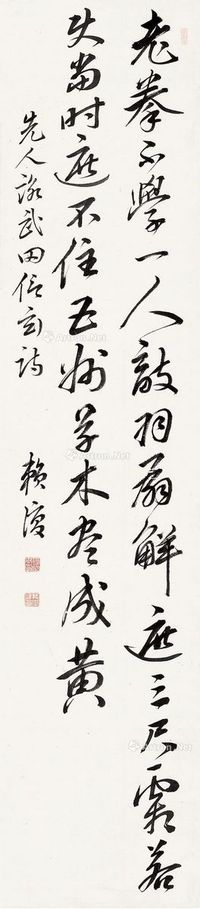 老拳不學一人敵羽扇解遮三尺霜若
使當時遮不住五州草木盡成黃
先人詠武田信玄詩
賴復